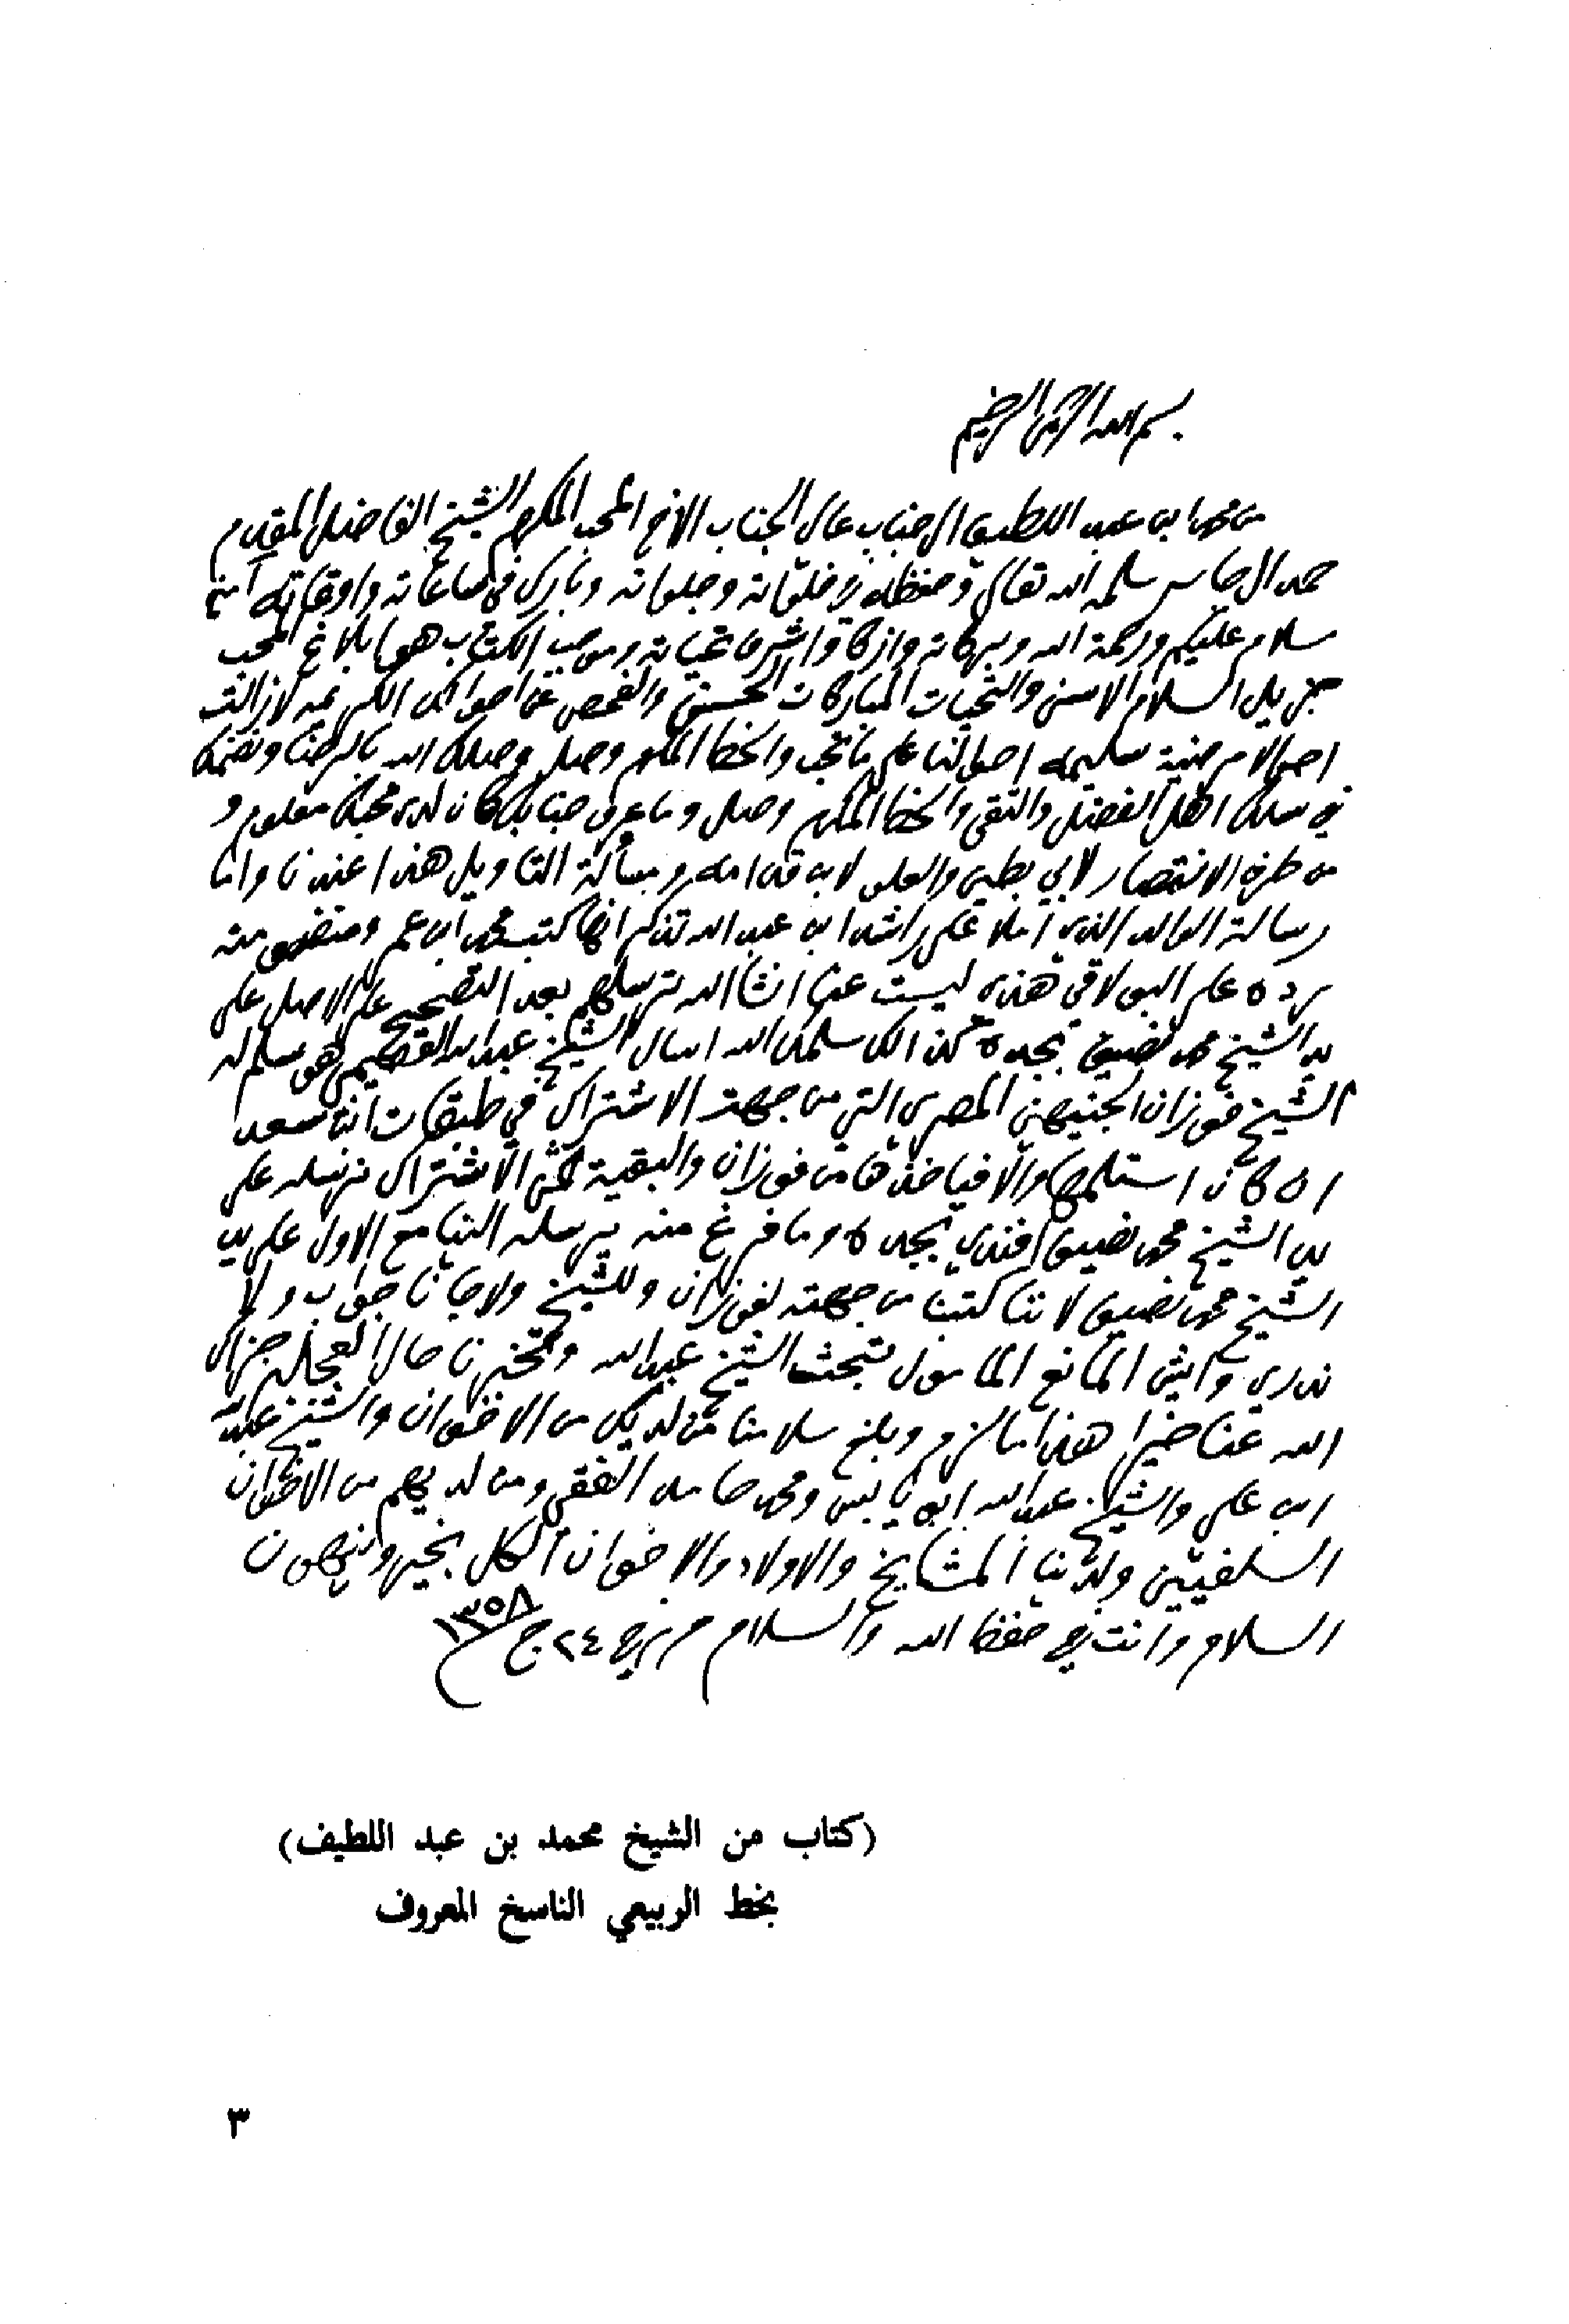 بسم الله الرحمن الرحيم
من محمد ابن عبد اللطيف الى جناب عالي الجناب الاخ المحب المكرم الشيخ الفاضل المقدم
حمد الجاسر سلمه الله تعالى وحفظه في خلواته وجلواته وبارك في ساعاته واوقاته آمين
سلام عليكم ورحمة الله وبركاته وازكا واشرف تحياته وموجب الكتاب هو ابلاغ المحب
جزيل السلام الاسنى والتحيات المباركات الحسنى والفحص عن احوالكم الكريمه لا زالت
احوالنا على ما تحب والخط المكرم وصل وصلك الله بالرضا ونظمك
في سلك اهل الفضل والتقى والخط المكرم وصل وما عرف جنابك كان لدى محبك معلوم و
من طرف الانتصار لابي بطين والعلو لابن قدامه ورسالة التأويل هذا عندنا واما
رسالة الوالد الذي املا على راشد ابن عبد الله تذكر انها كتب محمد ابن عمر ومنقول منه
رده على البولاقي هذي ليست عندنا انشا الله ترسلهم بعد التصحيح على الاصل على
يد الشيخ محمد نصيف بجده كذلك سلمك الله اسال الشيخ عبد الله القصيمي هو سلم له
الشيخ فوزان الجنيهين المصري التي من جهت الاشتراك في طبقات ابن سعد
ان كان استلمها والا فياخذها من فوزان والبقية الاشتراك نرسله على
يد الشيخ محمد نصيف افندي بجده وما فرغ منه يرسله الينا مع الاول على يد
الشيخ محمد نصيف لاننا كتبنا من جهته لفوزان وللشيخ ولا جانا جواب ولا
ندري وايش المانع المامول تبحث الشيخ عبد الله وتخبرنا حال العجله جزاك
الله عنا خيرا هذا ما لزم وبلغ سلامنا من لديك من الاخوان والشيخ عبد الله
ابن علي والشيخ عبد الله ابن يابس ومحمد حامد الفقي ومن لديهم من الاخوان
السلفيين ولدينا المشايخ والاولاد والاخوان الكل بخير وينهون
السلام وانت في حفظ الله والسلام حرر في ٢٤ ج ١٣٥٨
(كتاب من الشيخ محمد بن عبد اللطيف)
بخط الربيعي الناسخ المعروف
٣